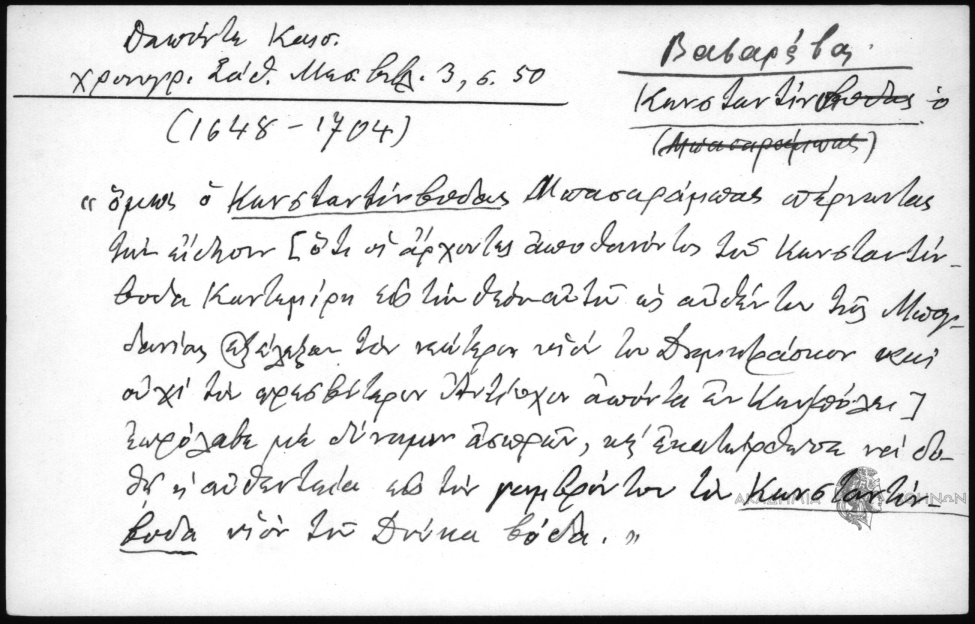 Δαπόντε Καισ.
χρονογρ. Σάθ. Μεσ. βιβλ. 3, σ. 50
(1648-1704)
Βασαρέβας
Κωνσταντίνβοδας ὁ
(Μπασαράμπας)
"ὅμως ὁ Κωνσταντίνβοδας Μπασαράμπας πέρνωντας
τὴν εἴδησιν [ὅτι οἱ ἄρχοντες ἀποθανόντος τοῦ Κωνσταντίν-
βοδα Καντεμίρη εἰς τὴν θέσιν αὐτοῦ ὡς αὐθέντην τῆς Μπογ-
δανίας ἐξέλεξαν τὸν νεώτερον υἱόν του Δημητράσκον καὶ
οὐχὶ τὸν πρεσβύτερον Ἀντίοχον ἀπόντα ἐν Κων/πόλει]
ἐπρόλαβε μὲ δύναμιν ἄσπρων, καὶ ἐκατώρθωσε νὰ δο-
θῇ ἡ αὐθεντεία εἰς τὸν γαμβρόν του τὸν Κωνσταντίν-
βοδα υἱὸν τοῦ Δούκα βόδα."
ΑΚΑΔΗΜΙΑ ΑΘΗΝΩΝ